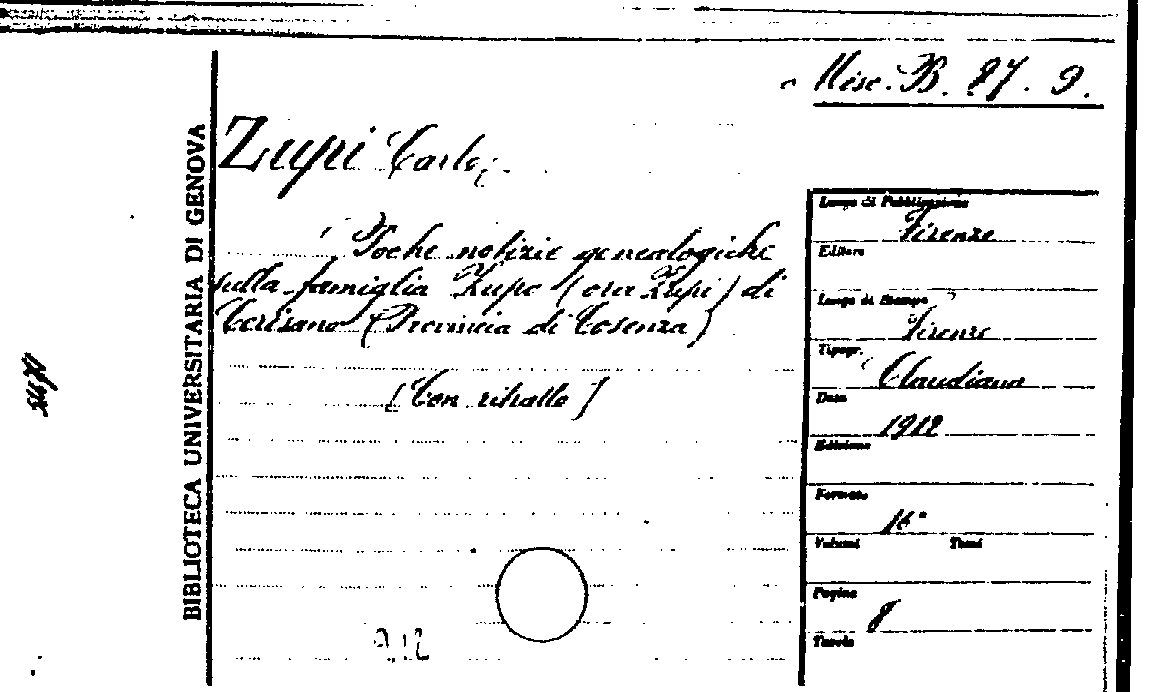 Misc. B. 87. 9.
BIBLIOTECA UNIVERSITARIA DI GENOVA
Zupi Carlo
Poche notizie genealogiche
sulla famiglia Zupo (ora Zupi) di
Cerisano (Provincia di Cosenza)
[Con ritratto]
912
Luogo di Pubblicazione
Firenze
Editore
Luogo di Stampa
Firenze
Tipogr.
Claudiana
Data
1912
Edizione
Formato
16°
Volumi Tomi
Pagine
8
Tavole